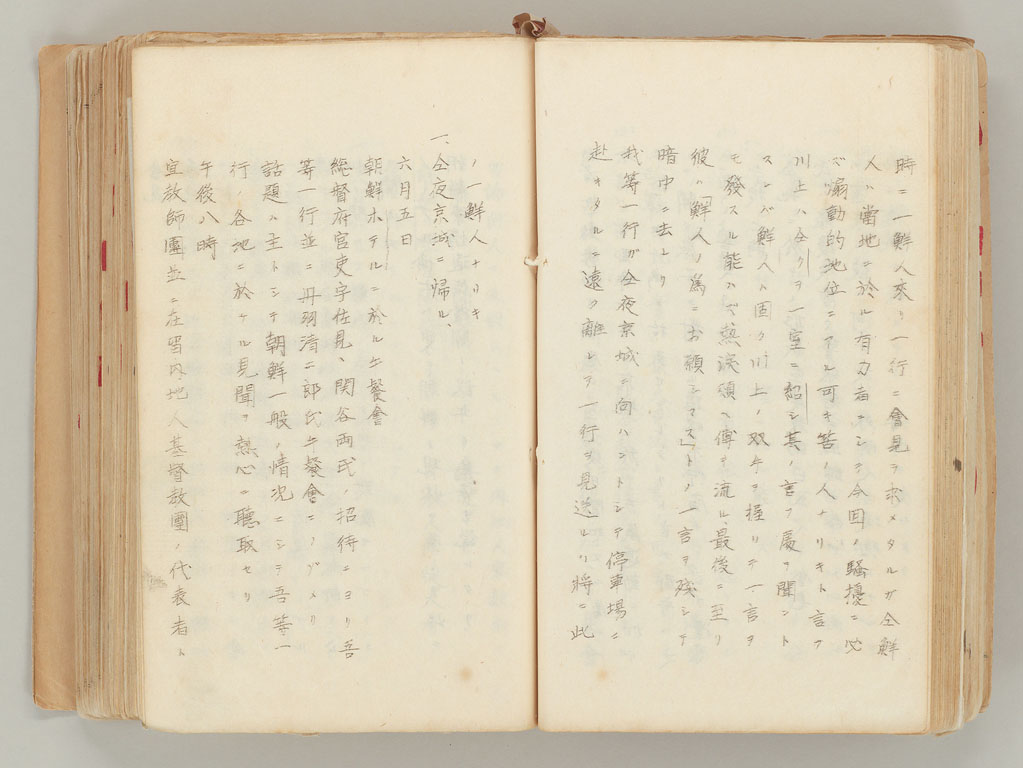 時ニ一鮮人來リ一行ニ會見ヲ求メタルガ仝鮮
人ハ當地ニ於ル有力者ニシテ今回ノ騒擾ニ必
ズ煽動的地位ニアル可キ筈ノ人ナリキト言フ
川上ハ仝クヲ一室ニ招シ其ノ言フ處ヲ聞ント
スレバ鮮人固ク川上ノ双手ヲ握リテ一言ヲ
モ發スル能ハズ熱涙頬ヘ傳テ流ル、最後ニ至リ
彼ハ「鮮人ノ爲ニお願シマス」トノ一言ヲ残シテ
暗中ニ去レリ
我等一行ガ仝夜京城ニ向ハントシテ停車場ニ
赴キタルニ遠ク離レテ一行ヲ見送ルリ將ニ此
ノ一鮮人ナリキ
一、仝夜京城ニ帰ル、
六月五日
朝鮮ホテルニ於ル午餐會
総督府官吏宇佐見、関谷両氏ノ招待ニヨリ吾
等一行並ニ丹羽清二郎氏午餐會ニノゾメリ
話題ハ主トシテ朝鮮一般ノ情況ニシテ吾等一
行ノ各地ニ於ケル見聞ヲ熱心ニ聽取セリ
午後八時
宣教師團並ニ在留内地人基督教團ノ代表者ト